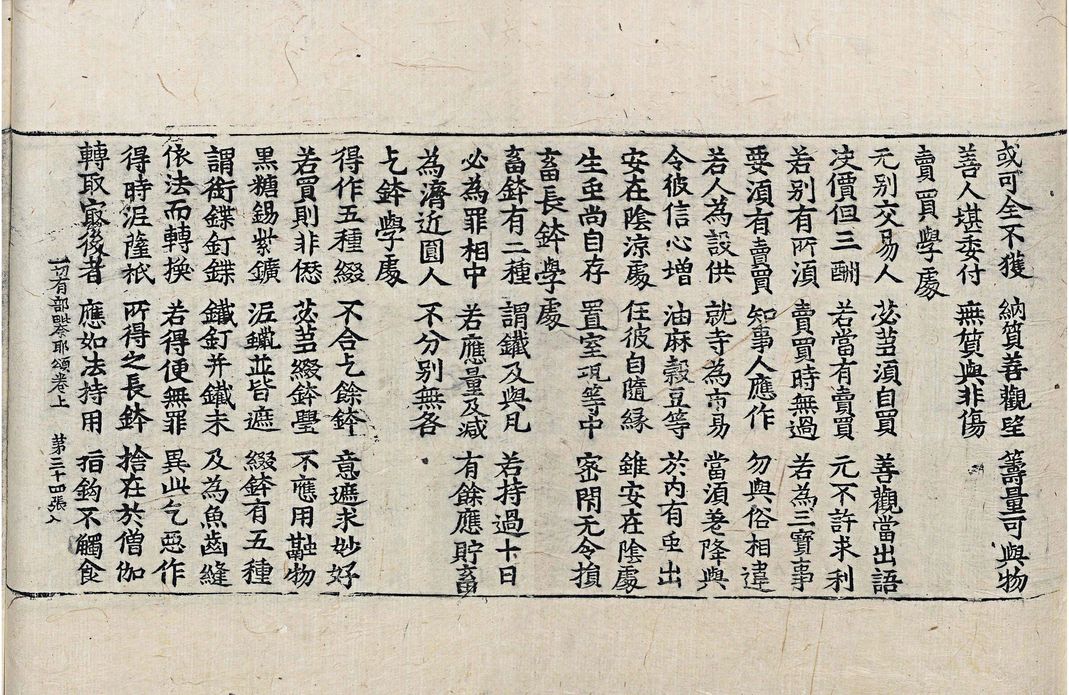 或可全不獲 納質善觀望 籌量可與物
善人堪委付 無質與非傷
賣買學處
无別交易人 苾芻須自買 善觀當出語
决價但三酬 若當有賣買 元不許求利
若別有所須 賣買時無過 若為三寶事
要須有賣買 知事人應作 勿與俗相違
若人為設供 就寺為市易 當須善降與
令彼信心增 油麻穀豆等 於內有虫出
安在陰涼處 任彼自隨緣 雖安在陰處
生虫尚自存 置室瓨等中 密閇无令損
畜長鉢學處
畜鉢有二種 謂鐵及與凡 若持過十日
必為罪相中 若應量及減 有餘應貯畜
為濟近圓人 不分別無各
乞鉢學處
得作五種綴 不合乞餘鉢 意遮求妙好
若買則非愆 苾芻綴鉢璺 不應用融物
黑糖錫紫鑛 泥鑞並皆遮 綴鉢有五種
謂銜鍱釘鍱 鐵釘并鐵末 及為魚齒縫
依法而轉換 若得便無罪 異此乞惡作
得時泥薩祇 所得之長鉢 捨在於僧伽
轉取㝡後者 應如法持用 指鈎不觸食
一切有部毗奈耶頌卷上 第三十四張 入